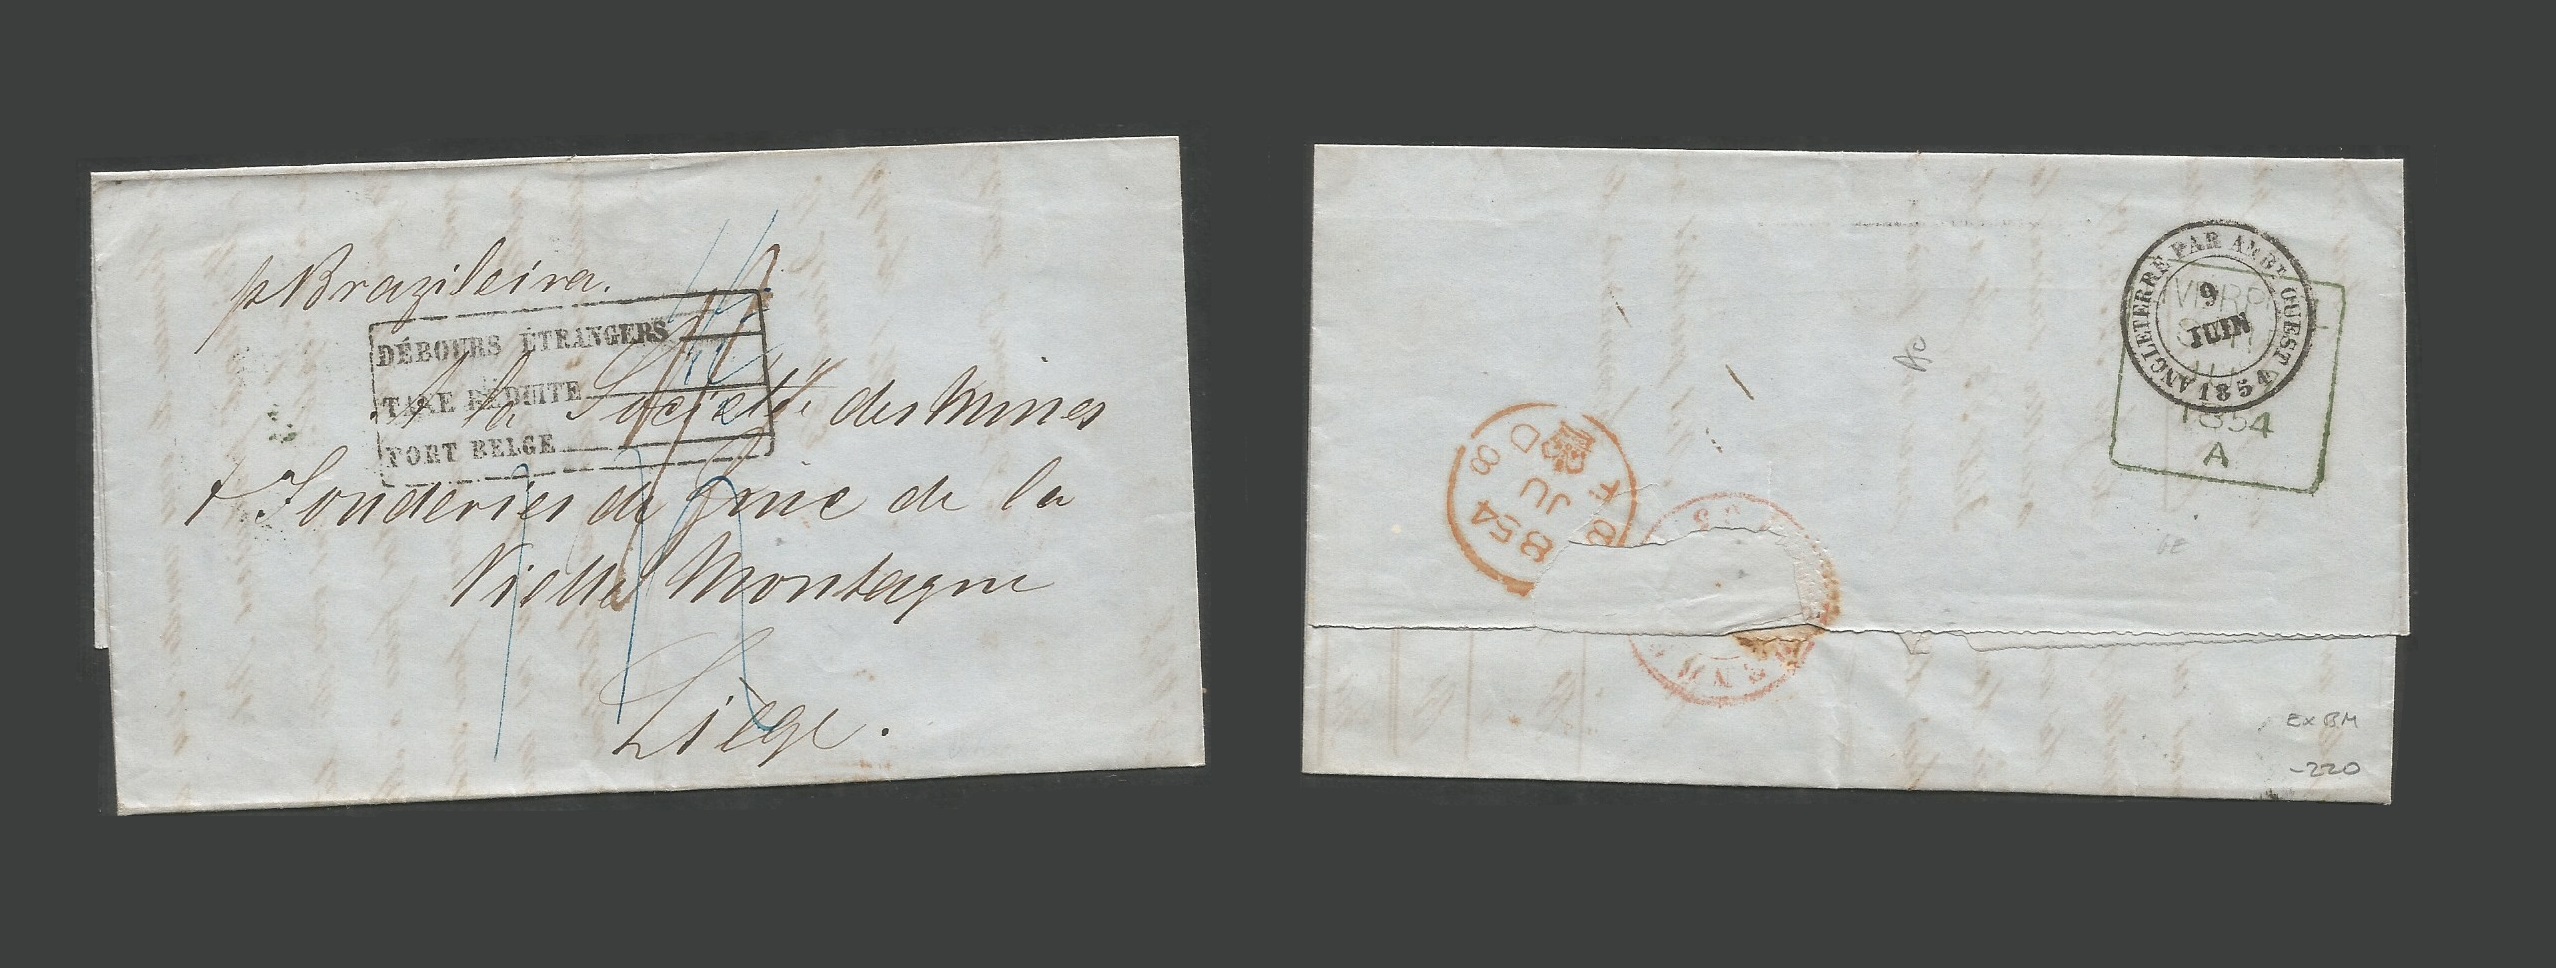 p Brazileira.
DÉBOURS ÉTRANGERS
TAXE RÉDUITE
PORT BELGE
A la Société des Mines
& Fonderies de Zinc de la
Vielle Montagne
Liège.
ANGLETERRE PAR AMBT OUEST
9
JUIN
1854
1854
A
8
JU
1854
Ex BM
-220